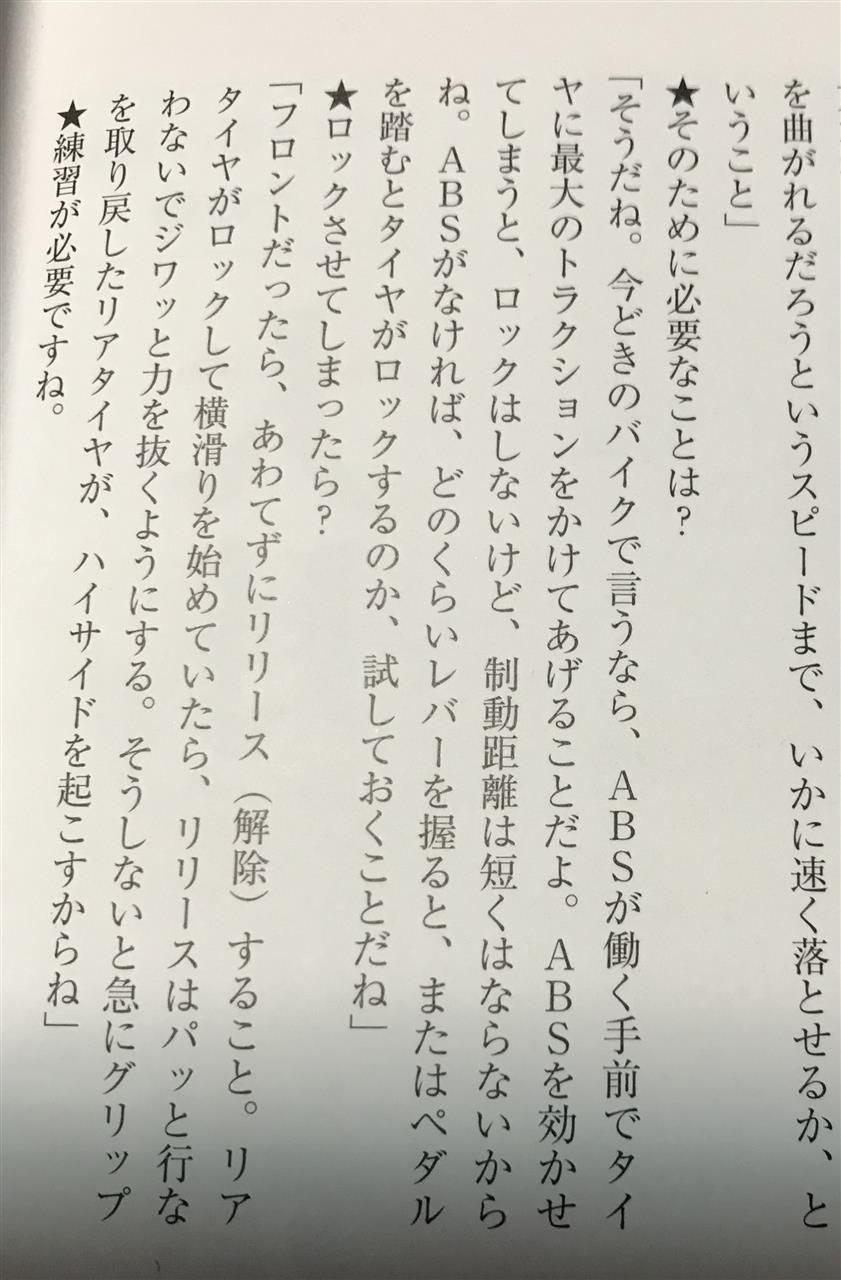 を曲がれるだろうというスピードまで、いかに速く落とせるか、と
いうこと」
★そのために必要なことは？
「そうだね。今どきのバイクで言うなら、ＡＢＳが働く手前でタイ
ヤに最大のトラクションをかけてあげることだよ。ＡＢＳを効かせ
てしまうと、ロックはしないけど、制動距離は短くはならないから
ね。ＡＢＳがなければ、どのくらいレバーを握ると、またはペダル
を踏むとタイヤがロックするのか、試しておくことだね」
★ロックさせてしまったら？
「フロントだったら、あわてずにリリース（解除）すること。リア
タイヤがロックして横滑りを始めていたら、リリースはパッと行な
わないでジワッと力を抜くようにする。そうしないと急にグリップ
を取り戻したリアタイヤが、ハイサイドを起こすからね」
★練習が必要ですね。